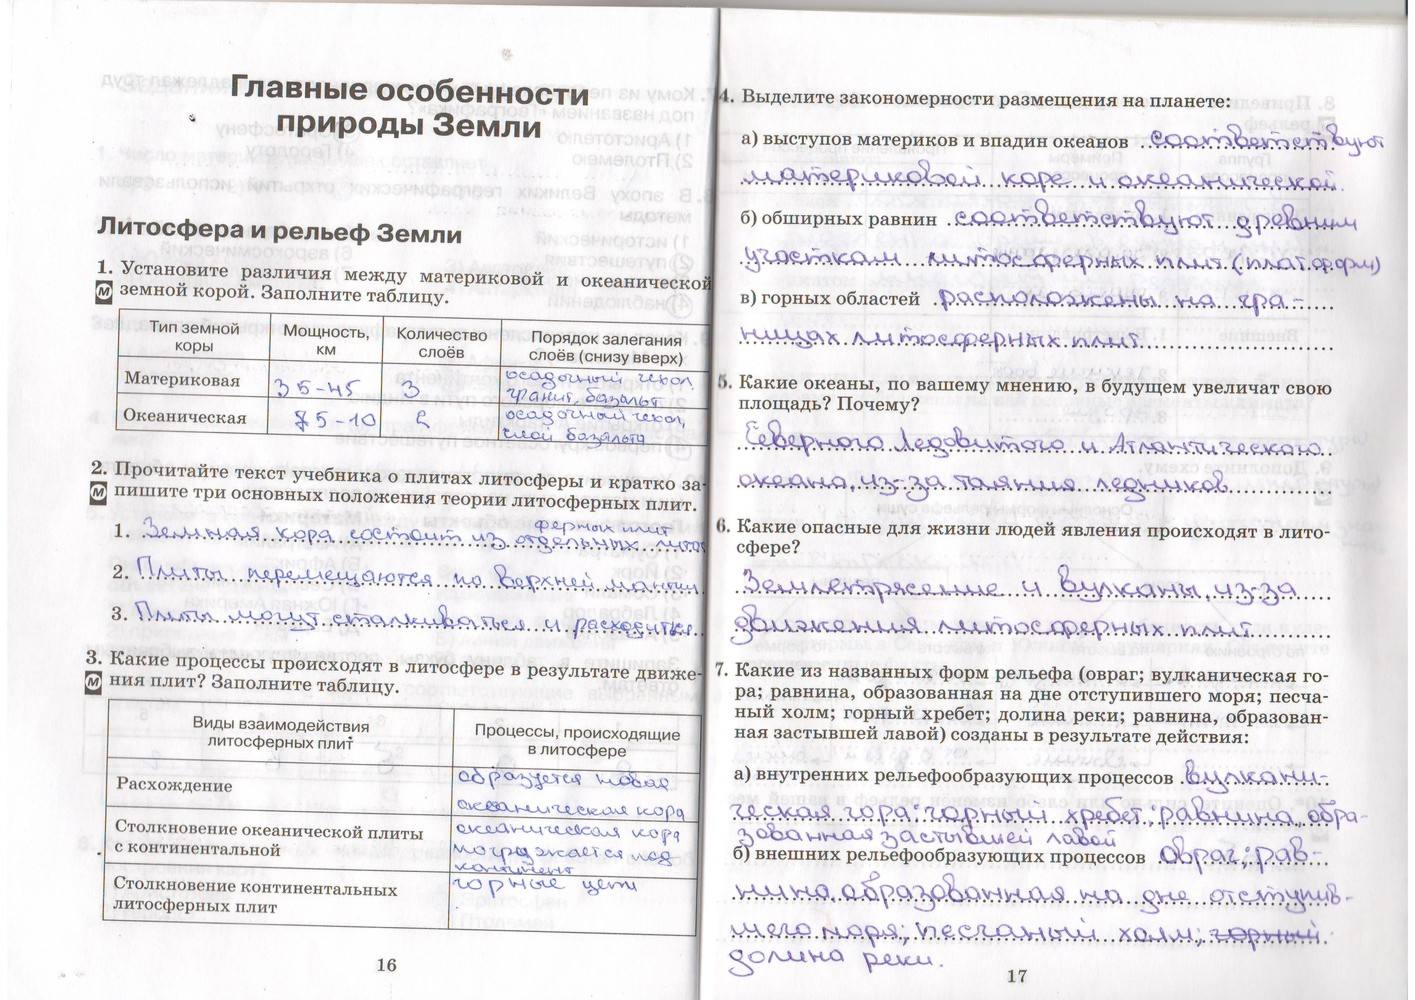 Главные особенности
природы Земли
Литосфера и рельеф Земли
1. Установите различия между материковой и океанической
М земной корой. Заполните таблицу.
Тип земной коры | Мощность, км | Количество слоёв | Порядок залегания слоёв (снизу вверх)
Материковая | 35-45 | 3 | осадочный чехол, гранит, базальт
Океаническая | 5-10 | 2 | осадочный чехол, слой базальта
2. Прочитайте текст учебника о плитах литосферы и кратко за-
М пишите три основных положения теории литосферных плит.
1. Земная кора состоит из отдельных литос
ферных плит
2. Плиты перемещаются по верхней мантии
3. Плиты могут сталкиваться и расходится
3. Какие процессы происходят в литосфере в результате движе-
М ния плит? Заполните таблицу.
Виды взаимодействия литосферных плит | Процессы, происходящие в литосфере
Расхождение | образуется новая океаническая кора
Столкновение океанической плиты с континентальной | океаническая кора погружается под континент
Столкновение континентальных литосферных плит | горные цепи
16
4. Выделите закономерности размещения на планете:
а) выступов материков и впадин океанов соответствуют
материковой коре и океанической.
б) обширных равнин соответствуют древним
участкам литосферных плит (платформ)
в) горных областей расположены на гра-
ницах литосферных плит.
5. Какие океаны, по вашему мнению, в будущем увеличат свою
площадь? Почему?
Северного Ледовитого и Атлантического
океана, из-за таяния ледников
6. Какие опасные для жизни людей явления происходят в лито-
сфере?
Землетрясение и вулканы, из-за
движения литосферных плит
7. Какие из названных форм рельефа (овраг; вулканическая го-
ра; равнина, образованная на дне отступившего моря; песча-
ный холм; горный хребет; долина реки; равнина, образован-
ная застывшей лавой) созданы в результате действия:
а) внутренних рельефообразующих процессов вулкани-
ческая гора; горный хребет; равнина, обра-
зованная застывшей лавой
б) внешних рельефообразующих процессов овраг; рав-
нина образованная на дне отступив-
шего моря; песчаный холм; горный
долина реки.
17